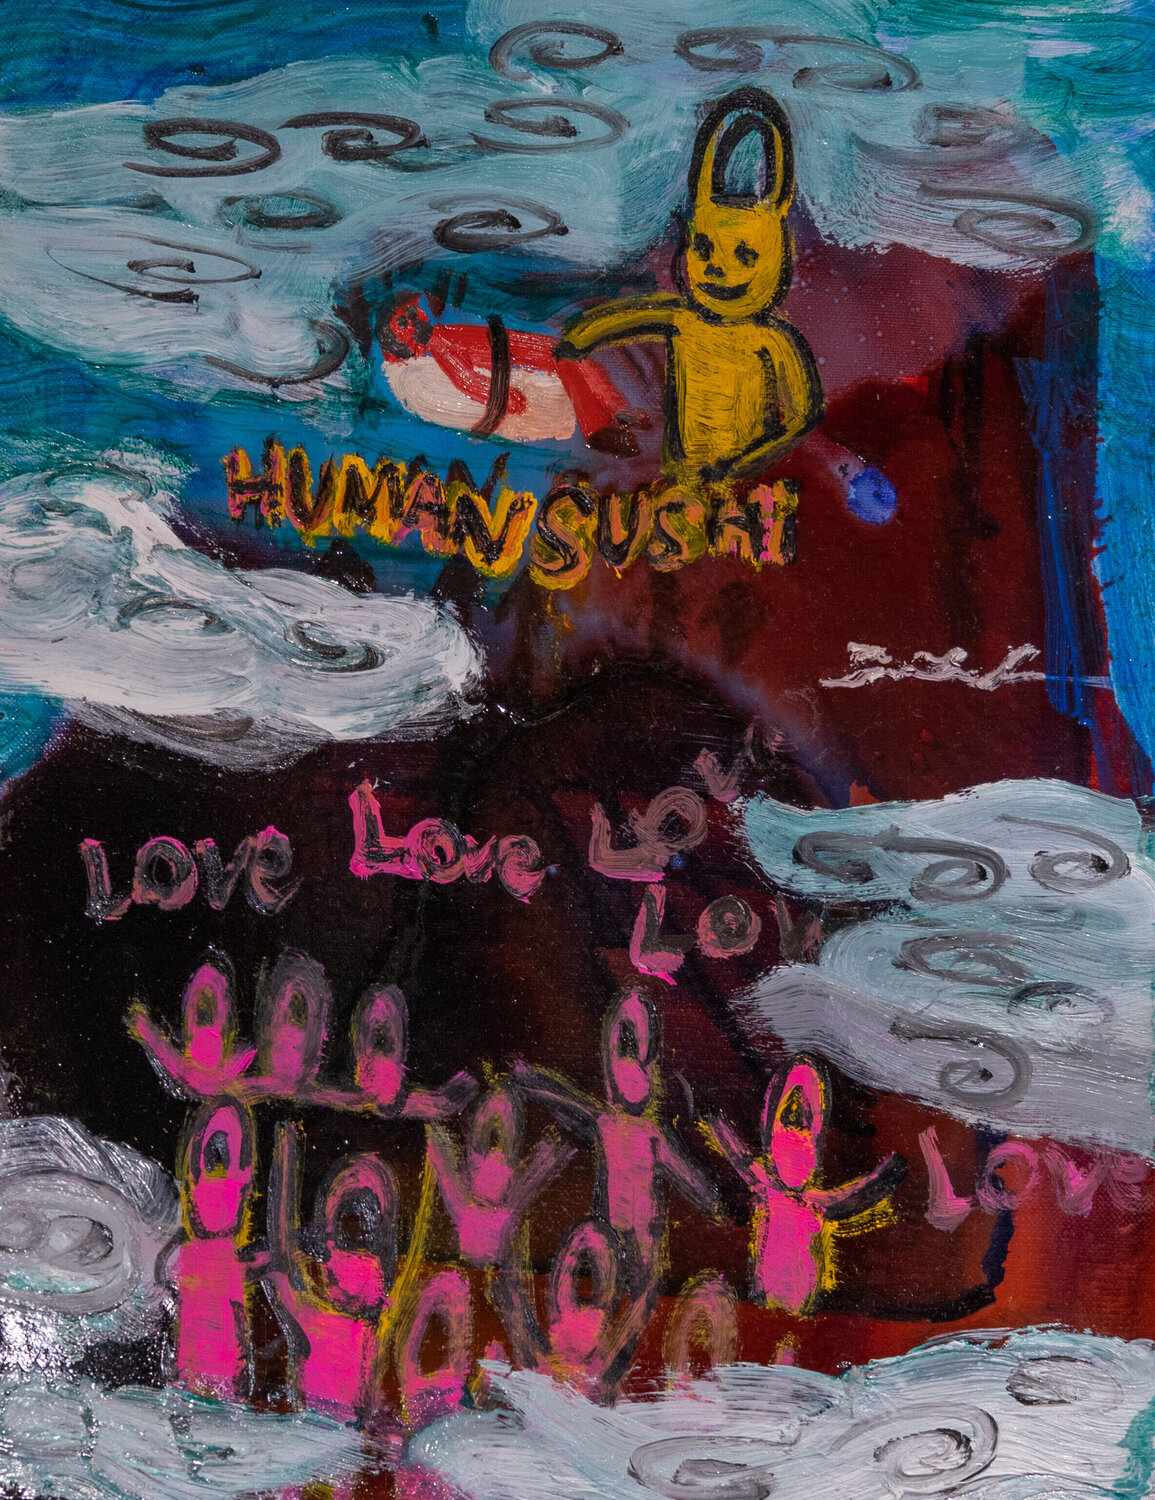 HUMAN SUSHI
Love Love Lov
Lov
Love